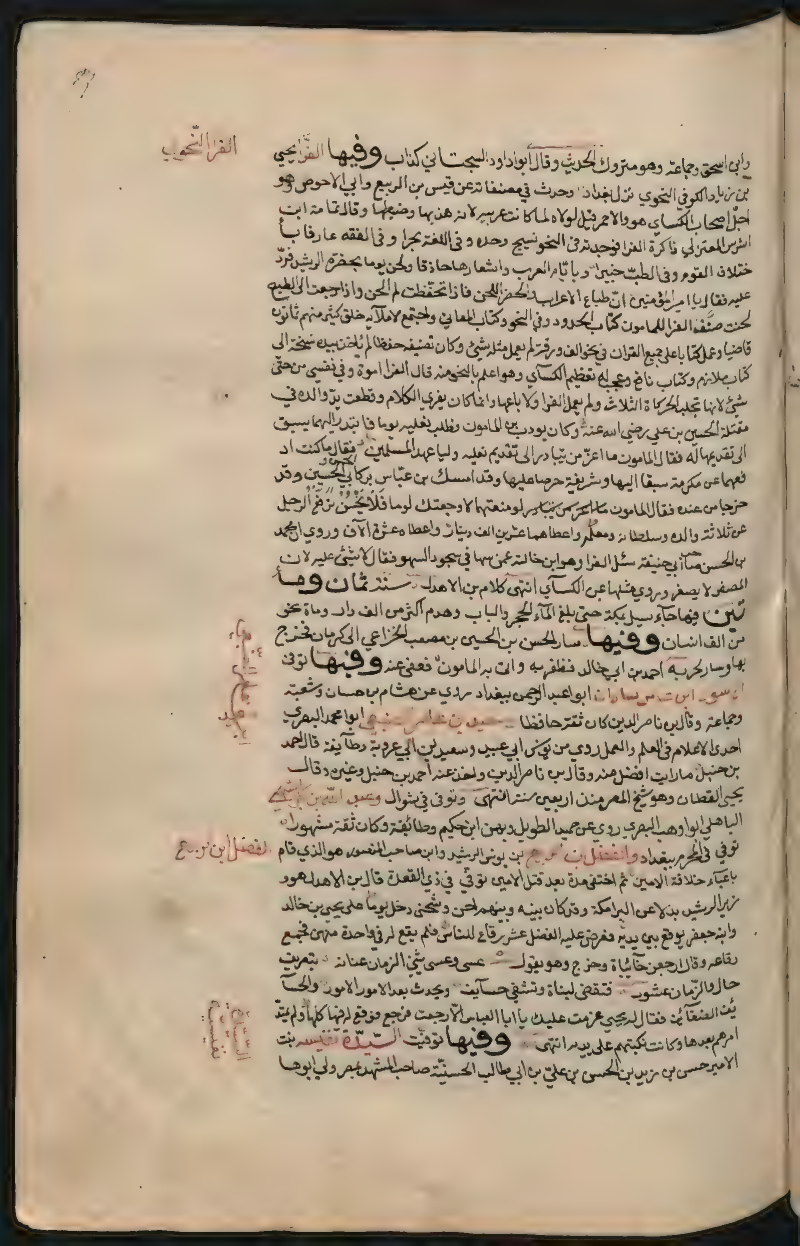 الفرا النحوي
وابي اسحق وجماعة وهو متروك الحديث وقال ابو داود السجستاني كذاب وفيها الفرا يحيى
بن زياد الكوفي النحوي نزل بغداد وحدث في مصنفاته عن قيس بن الربيع وابي الاحوص وهو
اجل اصحاب الكساي هو والاحمر قيل لولاه لما كانت عربيه لانه هذبها وضبطها وقال ثمامة ابن
اشرس المعتزلي ذاكرت الفرا فوجدته في النحو نسيج وحده وفي اللغة بحرا وفي الفقه عارفا با
ختلاف القوم وفي الطب خبيرا وبايام العرب واشعارها حاذقا ولحن يوما بحضرة الرشيد فرد
عليه فقال يا امير المؤمنين ان طباع الاعراب الحضر اللحن فاذا تحفظت لم الحن واذا رجعت الى الطبع
لحنت صنف الفرا للمامون كتاب الحدود وفي النحو وكتاب المعاني واجتمع لاملائه خلق كثير منهم ثمانون
قاضيا وعمل كتابا على جميع القران في نحو الف ورقة لم يعمل مثله شئ وكان تصنيفه حفظا لم ياخذ بيده نسخة الا
كتاب ملازم وكتاب نافع وعجب له تعظيم الكساي وهو اعلم بالنحو منه قال الفرا اموت وفي نفسي من حتى
شئ لانها تجلب الحركات الثلاث ولم يعمل الفرا ولا باعها وانما كان يفري الكلام وقطعت يد والده في
مقتلة الحسين بن علي رضي الله عنه وكان يودب بني المامون وطلب نعليه يوما فابتدر اليهما يسبق
الى تقديمها له فقال المامون ما اعز من يتبادر الى تقديم نعليه وليا عهد المسلمين فقال ما كنت اد
فعهما عن مكرمة سبقا اليها وشريفة حرصا عليها وقد امسك بن عباس بركابي الحسن والحسين وقد
خرجا من عنده فقال المامون لو منعتهما لاوجعتك لوما فلا يحسن ترفع الرجل
عن ثلاثة والده وسلطانه ومعلمه واعطاهما عشرين الف دينار واعطاه عشرة الاف وروي ان محمد
بن الحسن صاحب ابي حنيفة سئل الفرا وهو ابن خالته عمن سها في سجود السهو فقال لا شئ عليه لان
المصغر لا يصغر وروي مثلها عن الكساي انتهى كلام بن الاهدل سنة ثمان وما
تين فيها جاء سيل بمكة حتى بلغ الماء الحجر والباب وهدم اكثر من الف دار ومات نحو
من الف انسان وفيها سار الحسن بن الحسين بن مصعب الخزاعي الى كرمان فخرج
بها وسار لحربه احمد بن ابي خالد فظفر به واتى به المامون فعفى عنه وفيها توفي
ابو عبد الرحمن ببغداد روي عن هشام بن حسان وشعبة
وجماعة وقال بن ناصر الدين كان ثقة حافظا سعيد بن عامر الضبعي ابو محمد البصري
احدى الاعلام في العلم والعمل روى من يونس ابي عبيد وسعيد بن ابي عروبة وطائفة قال احمد
بن حنبل ما رايت افضل منه وقال بن ناصر الدين واخذ عنه احمد بن حنبل وغيره وقال
يحيى القطان وهو شيخ المصر منذ اربعين سنة انتهى وتوفي في شوال وعبد الله بن
الباهلي ابو وهب البصري روى عن حميد الطويل وبهز ابن حكيم وطائفة وكان ثقة مشهورا
توفي في المحرم ببغداد والفضل بن الربيع بن يونس الرشيد وابن صاحب المنصور هو الذي قام
الفضل ابن الربيع
باعباء خلافة الامين ثم اختفى مدة بعد قتل الامين توفي في ذي القعدة قال بن الاهدل هو و
زير الرشيد بدلا عن البرامكة وقد كان بينه وبينهم احن وشحنى دخل يوما على يحيى بن خالد
وابنه جعفر يوقع بين يديه وعرض عليه الفضل عشر رقاع للناس فلم يقع له في واحدة منهن فجمع
رقاعه وقال ارجعن خائبات وخرج وهو يقول عسى وعسى يثني الزمان عنانه بتصريف
حال والزمان عثور فتقضى لبانات وتشفى حسايف وتحدث بعد الامور الامور والحسا
يف الضغائن فقال له يحيى عزمت عليك يا ابا العباس الا رجعت فرجع فوقع له فيها كلها ولم يمتد
امرهم بعدها وكانت نكبتهم على يديه انتهى وفيها توفيت السيدة نفيسة بنت
السيدة نفيسة
الامير حسن بن زيد بن الحسن بن علي بن ابي طالب الحسنية صاحب المشهد بمصر ولي ابوها